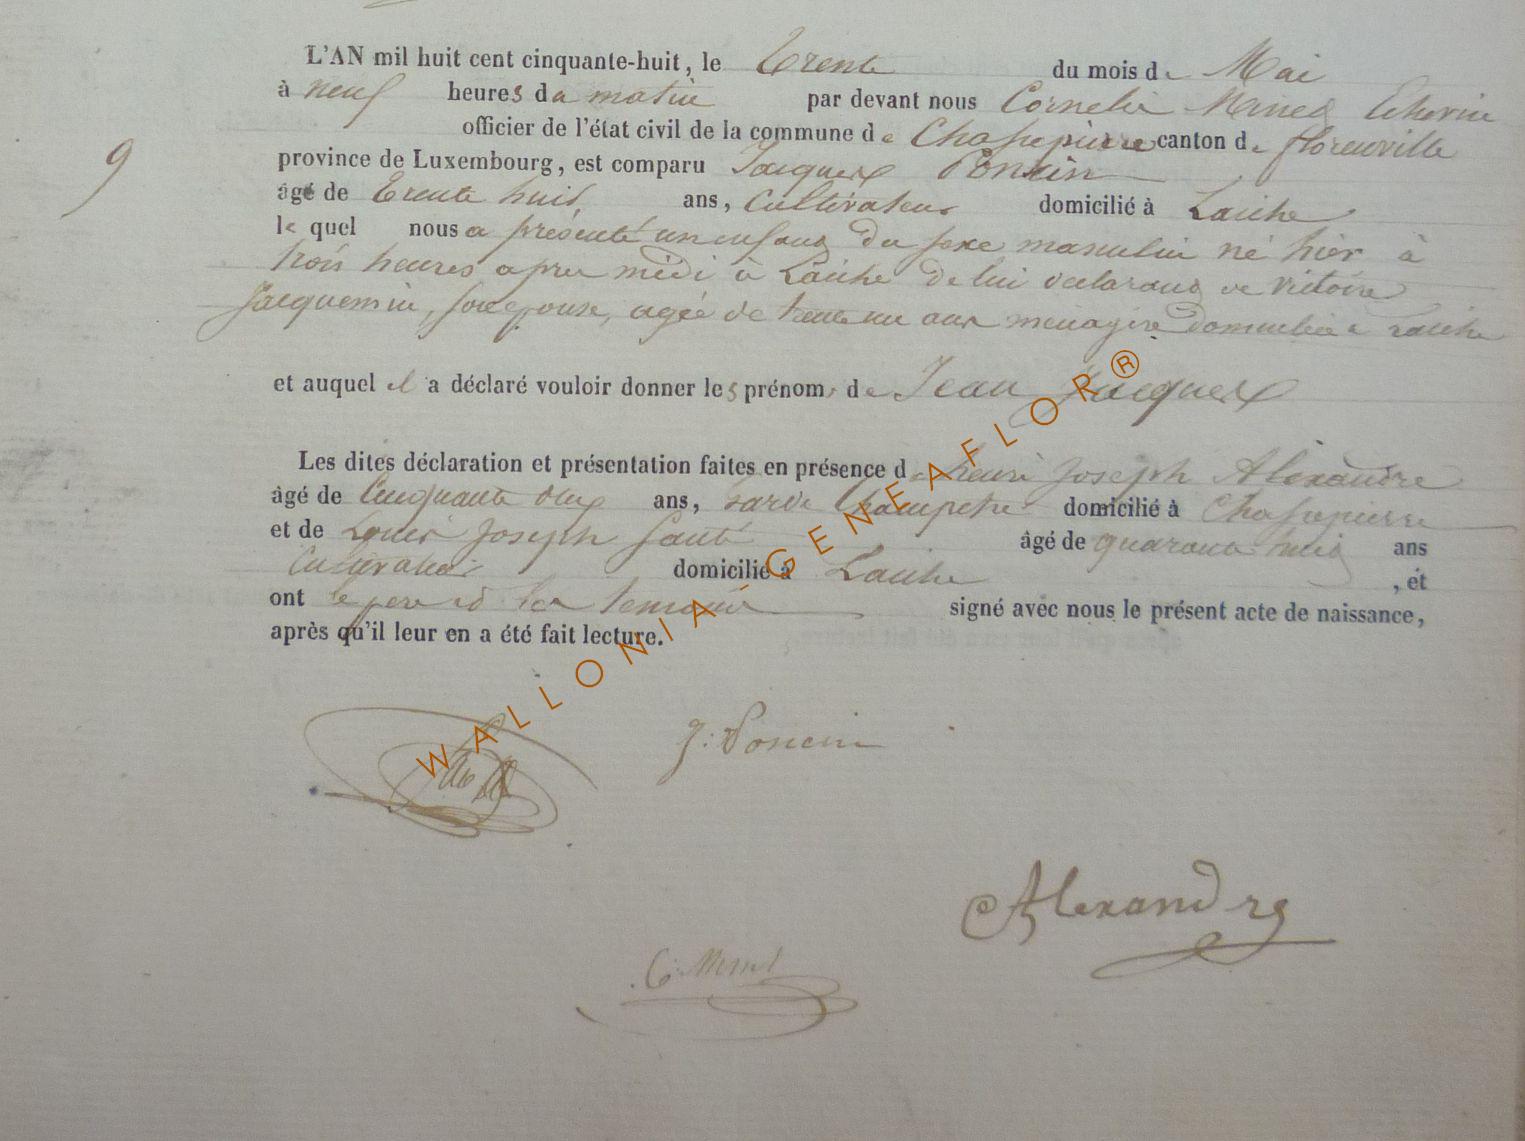 L'AN mil huit cent cinquante-huit, le Trente du mois de Mai
à neuf heures du matin par devant nous Cornelie Echevin
officier de l'état civil de la commune de Chassepierre canton de florenville
9
province de Luxembourg, est comparu Jacques Poncin
âgé de Trente huit ans, Cultivateur domicilié à Laiche
le quel nous a présenté un enfant du sexe masculin né hier à
trois heures apres midi à Laiche de lui declarant et de victoire
Jacquemin, son epouse, agée de trente un ans menagère domiciliée à Laiche
et auquel il a déclaré vouloir donner les prénoms de Jean Jacques
Les dites déclaration et présentation faites en présence de henri Joseph Alexandre
âgé de Cinquante deux ans, Garde Champetre domicilié à Chassepierre
et de Louis Joseph âgé de quarante huit ans
Cultivateur domicilié à Laiche , et
ont le pere et les temoins signé avec nous le présent acte de naissance,
après qu'il leur en a été fait lecture.
WALLONIA-GENEAFLOR®
J: Poncin
Alexandre